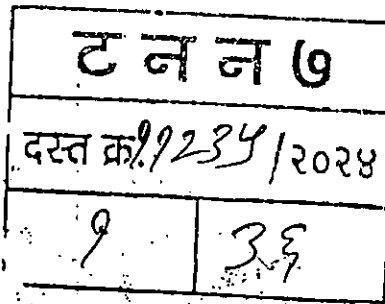 ट न न ७
दस्त क्र.११२३५/२०२४
१ ३६